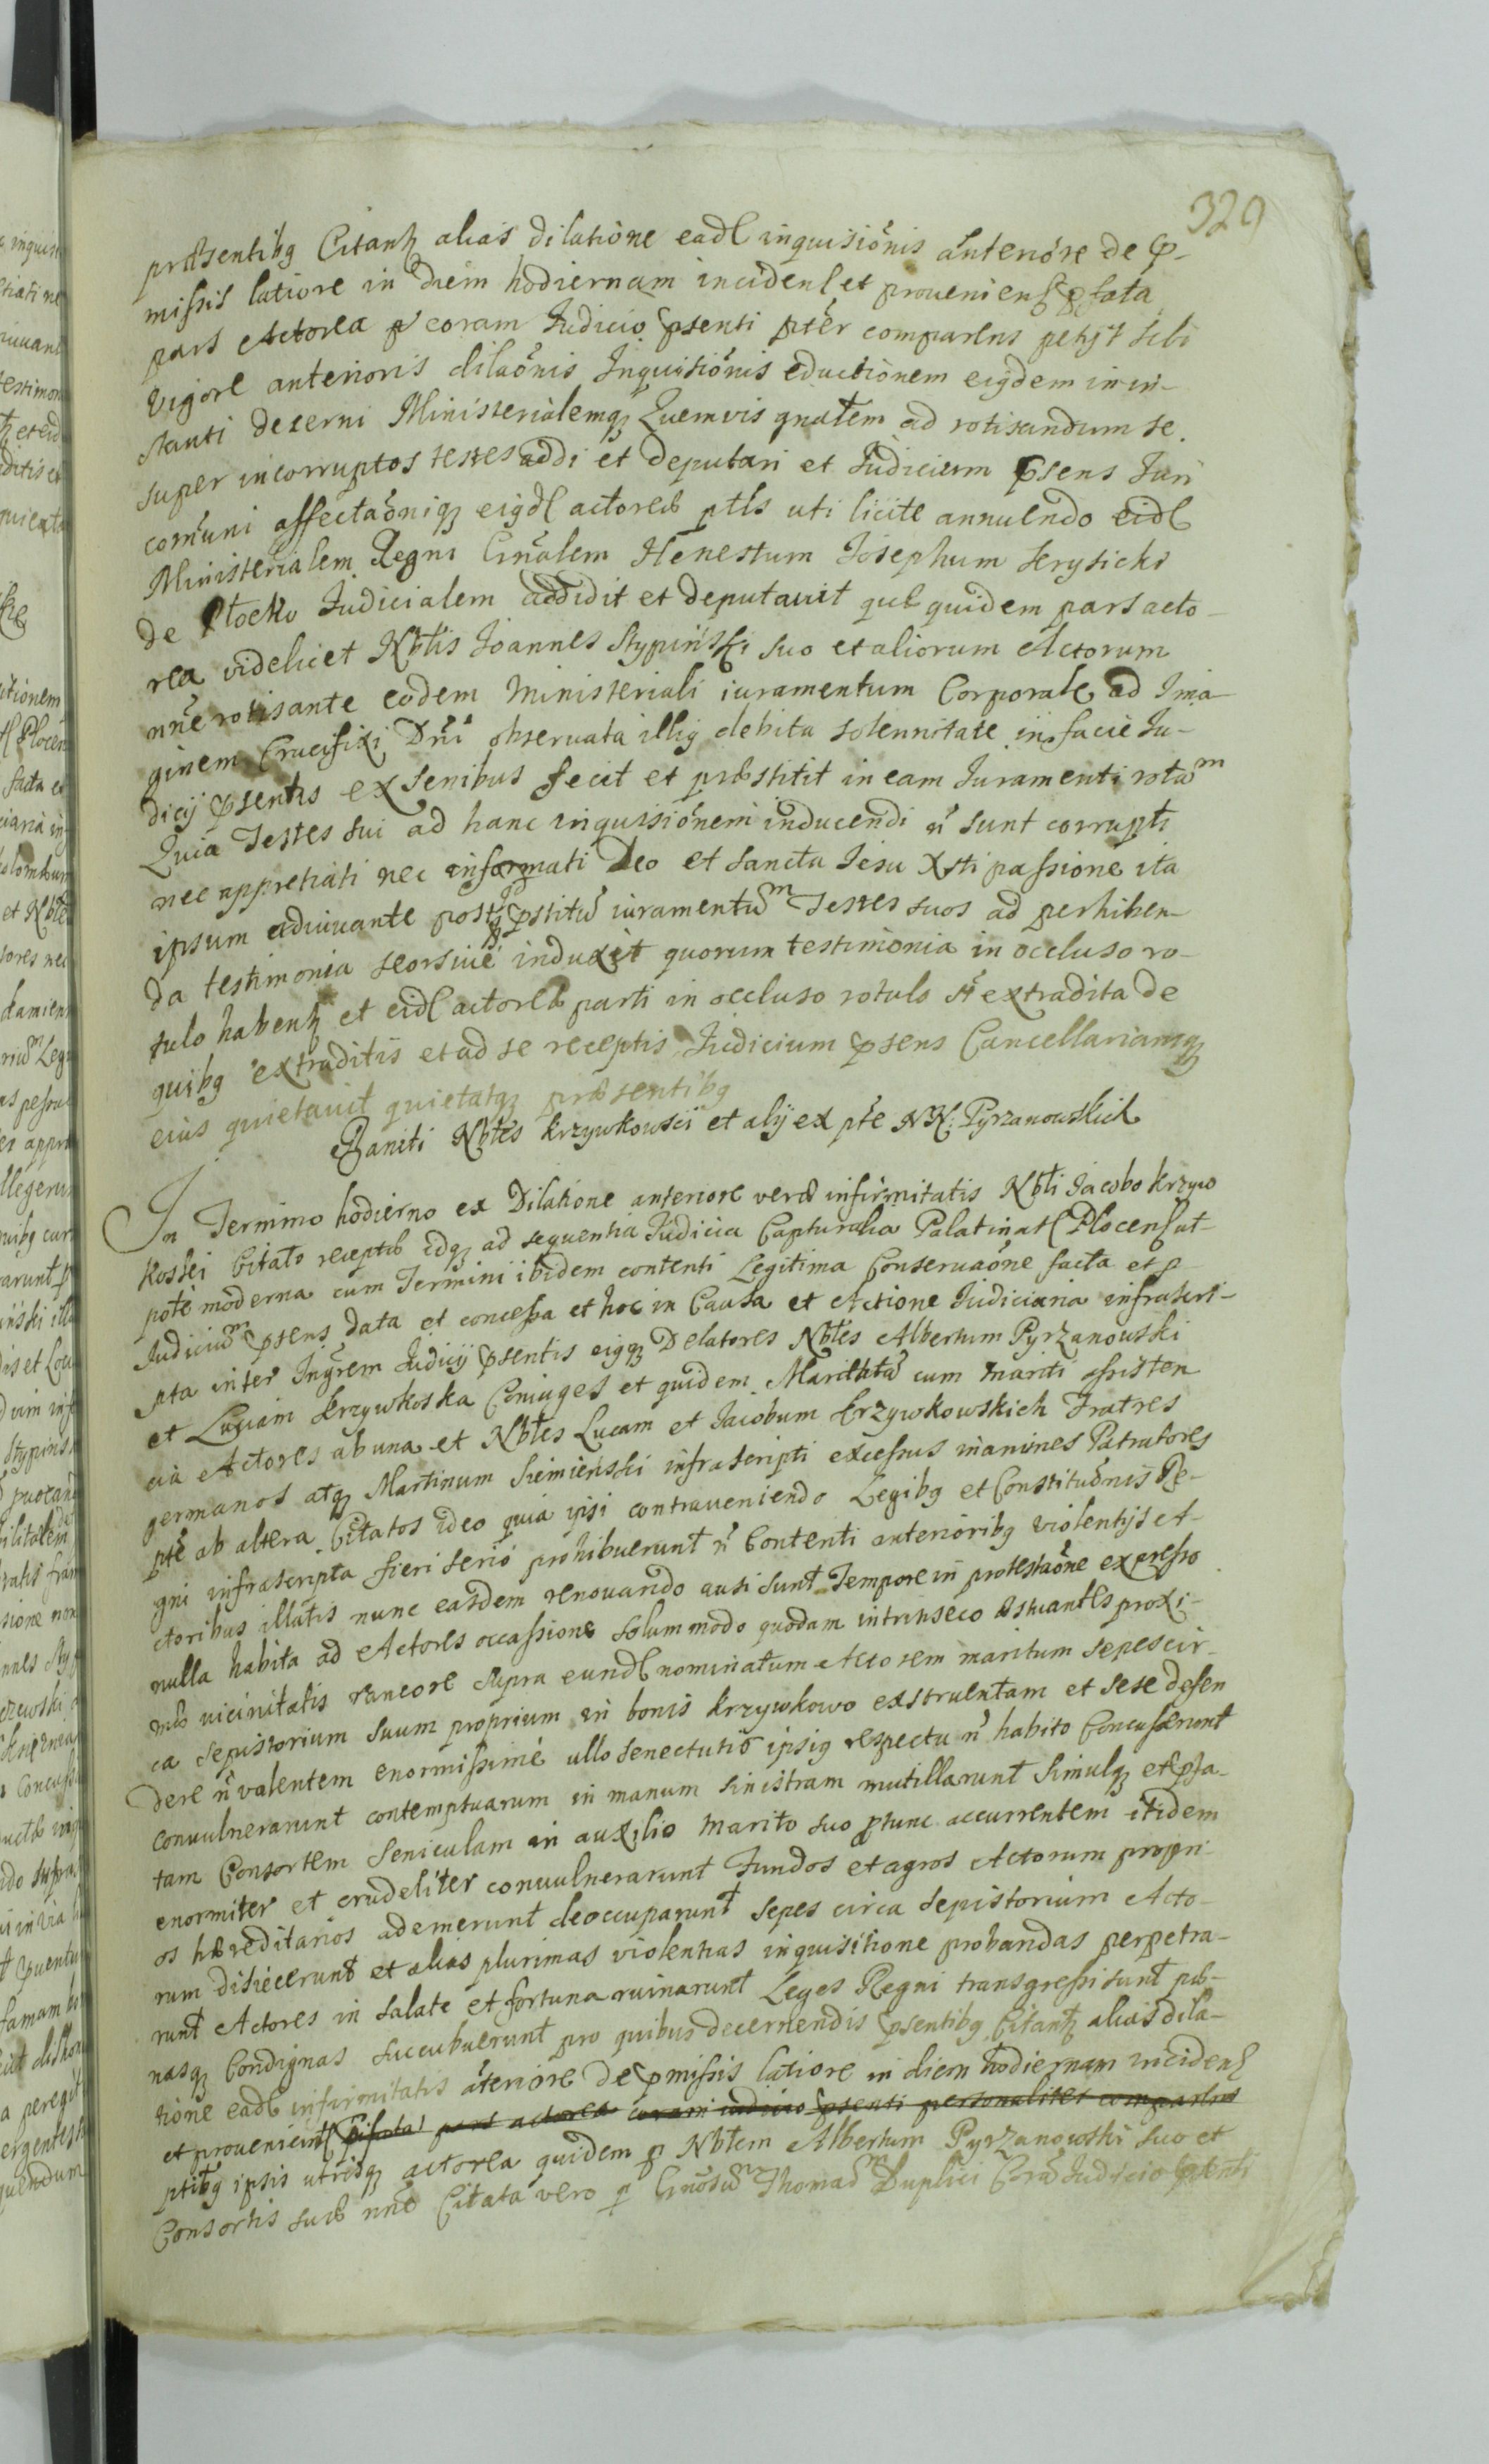 329
præsentibg Citantz alias dilatione ead inquisiönis änteriöre de p-
missis latiore in diem hodiernam inciden et provenien pfata
pars Actorea p coram Iudicio psenti ptër comparens petÿt sibi
vigore anterioris dilaönis Inquisiönis eductionem eigdem in in-
stanti decerni Ministerialemq Quemvis gnälem ad rotisandum se
super incorruptos testes addi et deputari et Iudicium psens Iuri
comuni affectaöniq eigd actoreæ ptis uti licite annuendo eid
Ministerialem Regni Gnälem Honestum Iosephum Serysicki
de Płocko Iudicialem addidit et deputavit quæ quidem pars acto-
rea videlicet Nbtis Ioannes Stypiński suo et aliorum Actorum
nne rotisante eodem Ministeriali iuramentum Corporale ad Ima-
ginem Crucifixi Dni observata illig debita solennitate in facie Iu-
dicÿ psentis ex senibus fecit et præstitit in eam Iuramenti rotam
Quia Testes sui ad hanc inquisiönem inducendi n sunt corrupti
nec appretiati nec informati Deo et Sancta Iesu Xsti passione ita
ipsum adiuvante post pstitū iuramentum Testes suos ad perhiben-
da testimonia seorsive induxit quorum testimonia in occluso ro-
tulo habentz et eid actoreæ parti in occluso rotulo st extradita de
quibg extraditis et ad se receptis Iudicium psens Cancellariamq
eius quietavit quietatq præsentibg
Baniti Nbtes Krzywkowscÿ et alÿ ex pte NN: Pyrzanowskich
In Termino hodierno ex Dilatione anteriore veræ infirmitatis Nbti Iacobo Krzyw
koski Citato receptæ idq ad sequentia Iudicia Capturalia Palatinat Plocen ut-
pote moderna cum Termini ibidem contenti Legitima Conservaöne facta et p
Iudicium psens data et concessa et hoc in Causa et Actione Iudiciaria infrascri-
pta inter Ingrem Iudicÿ psentis eigq Delatores Nbtes Albertum Pyrzanowski
et Luciam Krzywkoska Coniuges et quidem Maritatā cum mariti assisten
cia Actores ab una et Nbtes Lucam et Iacobum Krzywkowskich Fratres
germanos atq Martinum Siemieński infrascripti excessus inanimes Patratores
pte ab altera Citatos ideo quia ipsi contraveniendo Legibg et Constituönis Re-
gni infrascripta fieri serio prohibuerunt n Contenti anterioribg violentÿs A-
ctoribus illatis nunc easdem renovando ausi sunt Tempore in protestaöne expresso
nulla habita ad Actores occassione solummodo quodam intrinseco æstuantes proxi-
mæ vicinitatis rancore supra eund nominatum Actorem maritum sepes cir-
ca sepistorium suum proprium in bonis Krzywkowo exstruentam et sese defen
dere n valentem enormissime ullo senectutis ipsig respectu n habito Concusserunt
convulnerarunt contemptuarum in manum sinistram mutillarunt Simulq et pfa-
tam Consortem Seniculam in auxilio marito suo ptunc accurrentem itidem
enormiter et crudeliter convulnerarunt Fundos et agros Actorum propri-
os hæreditarios ademerunt deoccuparunt sepes circa sepistorium Acto-
rum disiecerunt et alias plurimas violentias inquisitione probandas perpetra-
runt Actores in salute et fortuna ruinarunt Leges Regni transgressi sunt pæ-
nasq Condignas succubuerunt pro quibus decernendis psentibg Citantz alias dila-
tione ead infirmitatis änteriore de pmissis latiore in diem hodiernam inciden
et provenien pfata pars actorea coram iudicio psenti personaliter comparens
ptibg ipsis utrisq actorea quidem p Nbtem Albertum Pyrzanowski suo et
Consortis suæ nne Citata vero p Gnosum Thomam Duplici Corā Iudicio psenti